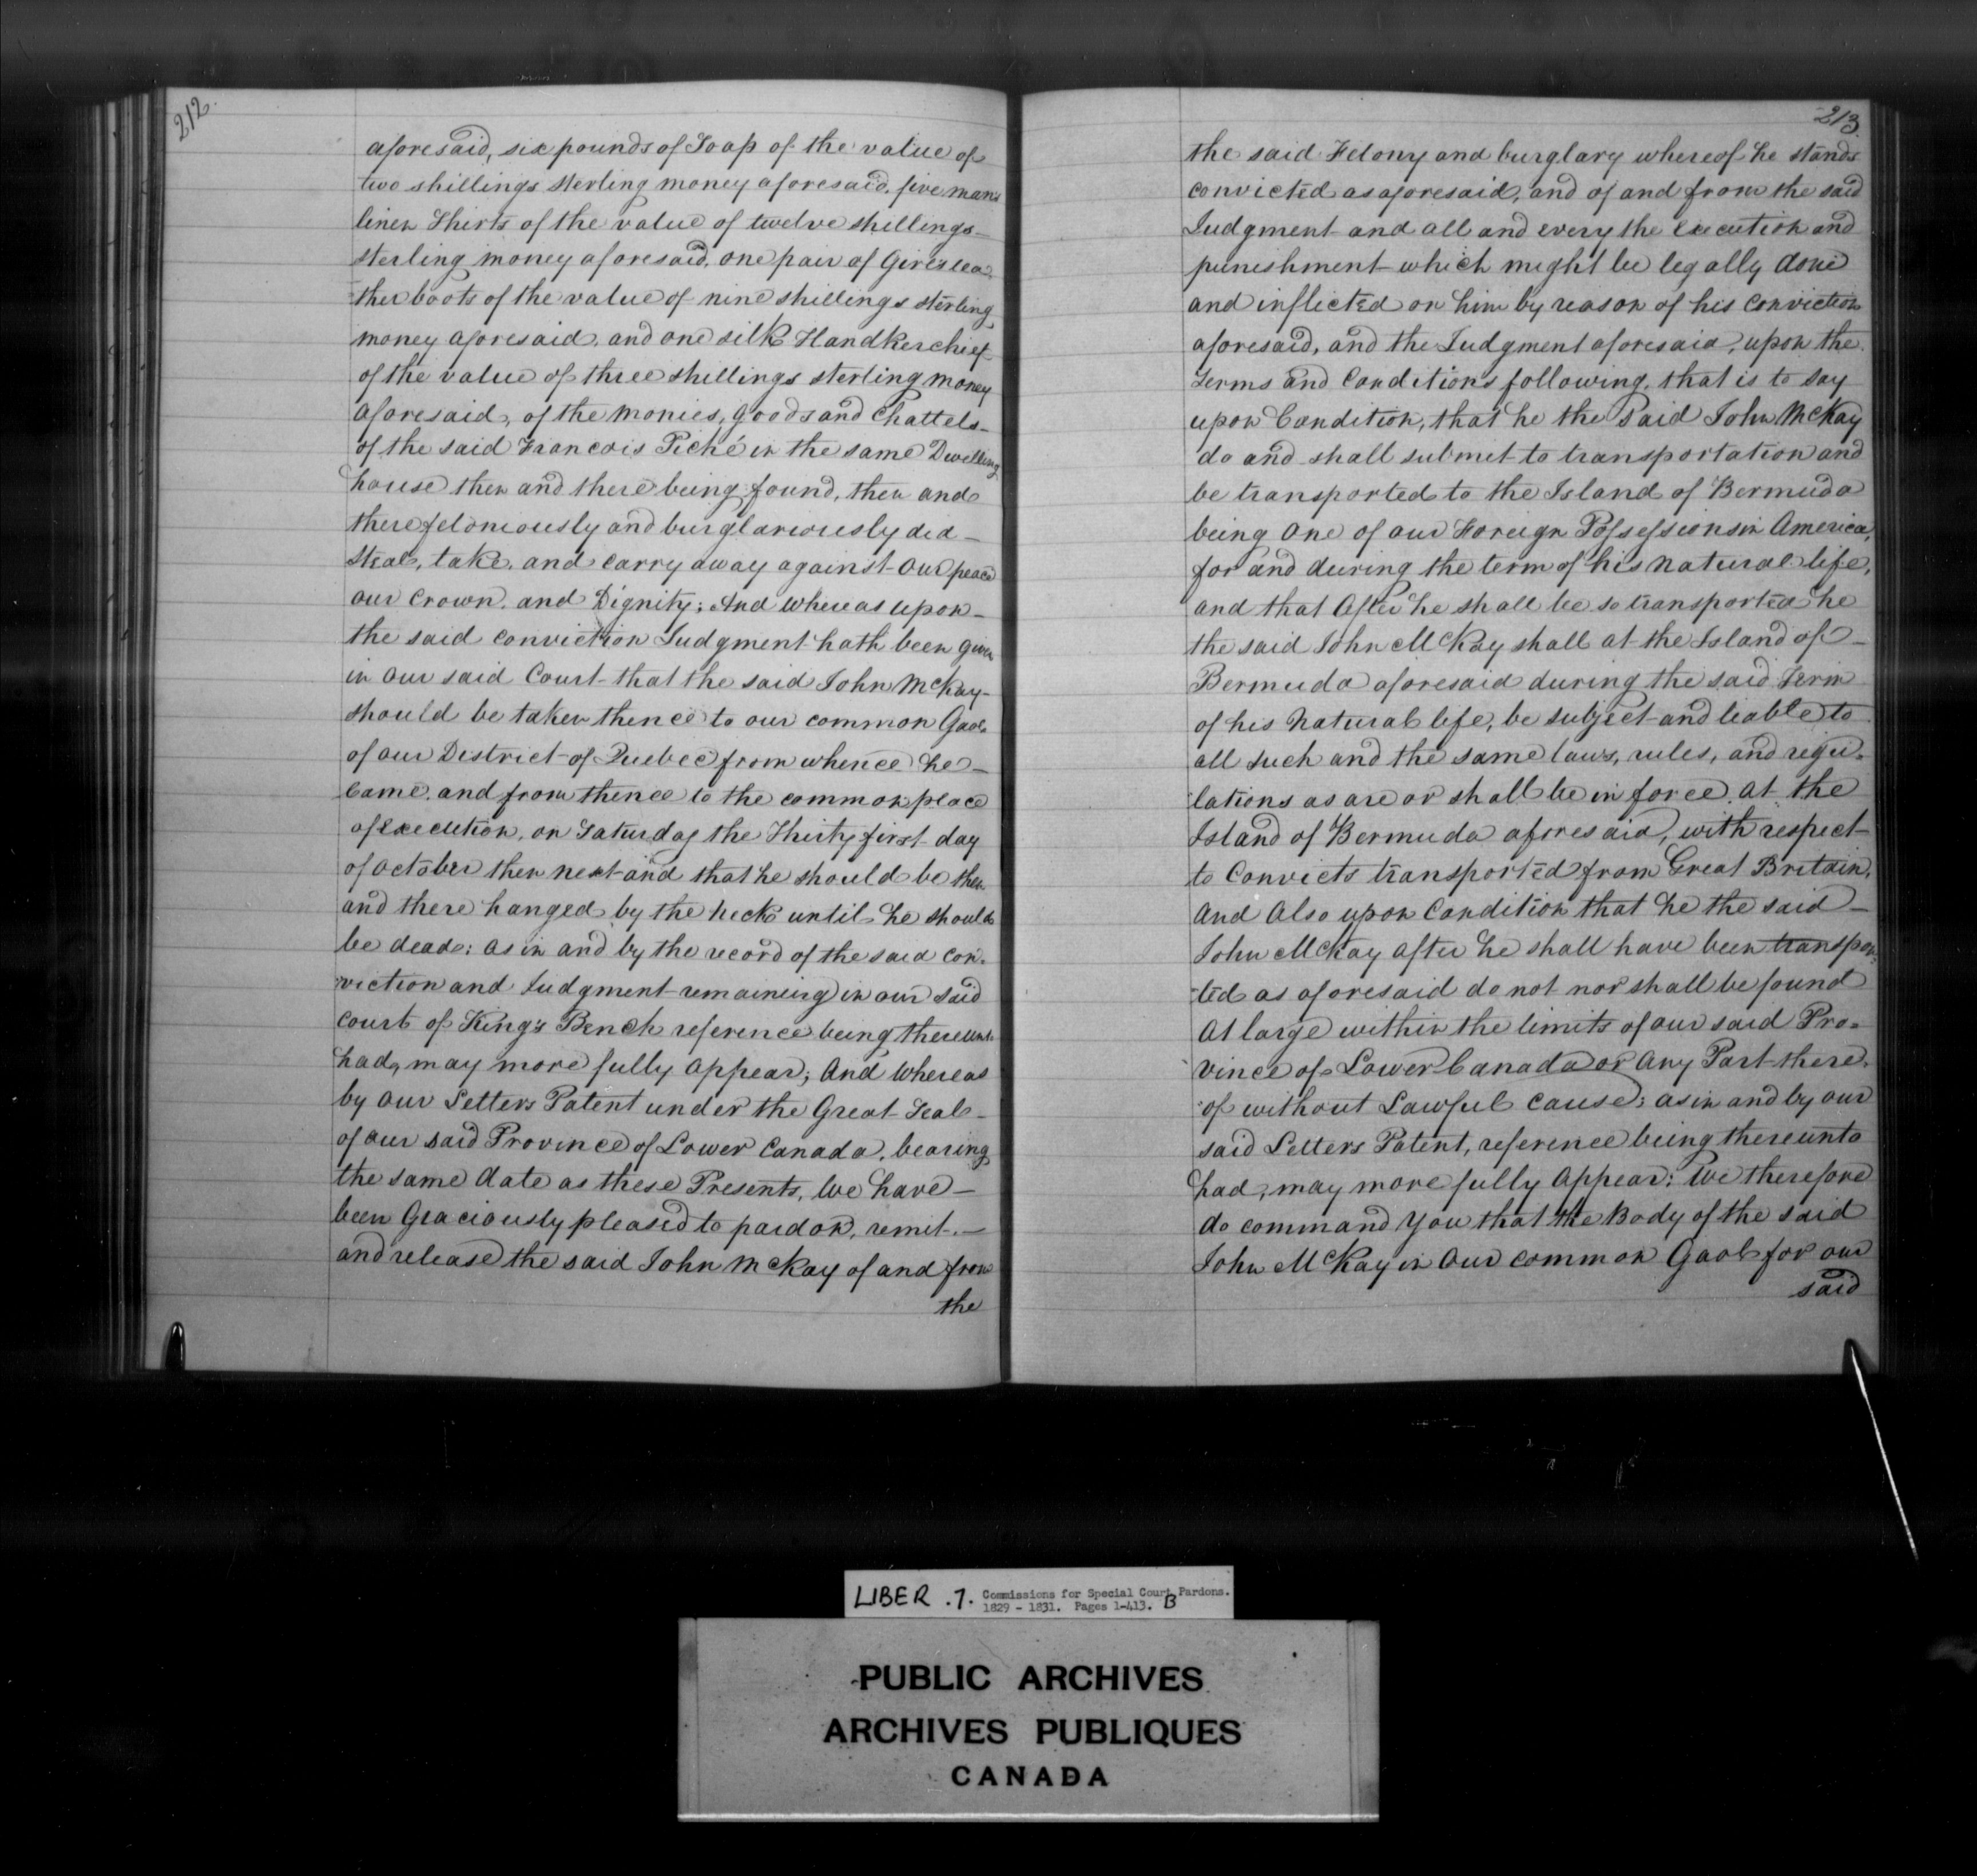 212.
aforesaid, six pounds of Soap of the value of
two shillings sterling money aforesaid, five man's
linen Shirts of the value of twelve shillings
sterling money aforesaid, one pair of lea
ther boots of the value of nine shillings sterling
money aforesaid, and one silk Handkerchief
of the value of three shillings sterling money
aforesaid, of the monies, goods and Chattels
of the said Francois Piché in the same Dwelling
house then and there being found, then and
there feloniously and burglariously did
steal, take, and carry away against our peace
our Crown, and Dignity; And whereas upon
the said conviction Judgment hath been given
in our said Court that the said John McKay
should be taken thence to our common Gaol
of our District of Quebec from whence he
Came, and from thence to the common place
of Execution, on Saturday the Thirty first day
of October then next and that he should be then
and there hanged by the neck until he should
be dead; as in and by the record of the said con=
viction and Judgment remaining in our said
Court of King's Bench reference being thereunto
had, may more fully appear; And whereas
by our Letters Patent under the Great Seal
of our said Province of Lower Canada, bearing
the same date as these Presents, We have
been Graciously pleased to pardon, remit,
and release the said John McKay of and from
the
213.
the said Felony and burglary whereof he stands
convicted as aforesaid, and of and from the said
Judgment and all and every the execution and
punishment which might be legally done
and inflicted on him by reason of his conviction
aforesaid, and the Judgment aforesaid, upon the
terms and Conditions following, that is to say
upon Condition, that he the said John McKay
do and shall submit to transportation and
be transported to the Island of Bermuda
being one of our Foreign Possessions in America,
for and during the term of his natural life,
and that after he shall be so transported he
the said John McKay shall at the Island of
Bermuda aforesaid during the said Term
of his Natural life, be subject and liable to
all such and the same laws, rules, and regu=
lations as are or shall be in force at the
Island of Bermuda aforesaid, with respect
to Convicts transported from Great Britain,
And also upon Condition that he the said
John McKay after he shall have been transpor=
ted as aforesaid do not nor shall be found
at large within the limits of our said Pro=
vince of Lower Canada or any Part there=
of without Lawful cause; as in and by our
said Letters Patent, reference being thereunto
had, may more fully appear: We therefore
do command you that the Body of the said
John McKay in our common Gaol for our
said
LIBER .7. Commissions for Special Court Pardons.
1829 - 1831. Pages 1-413. B
PUBLIC ARCHIVES
ARCHIVES PUBLIQUES
CANADA